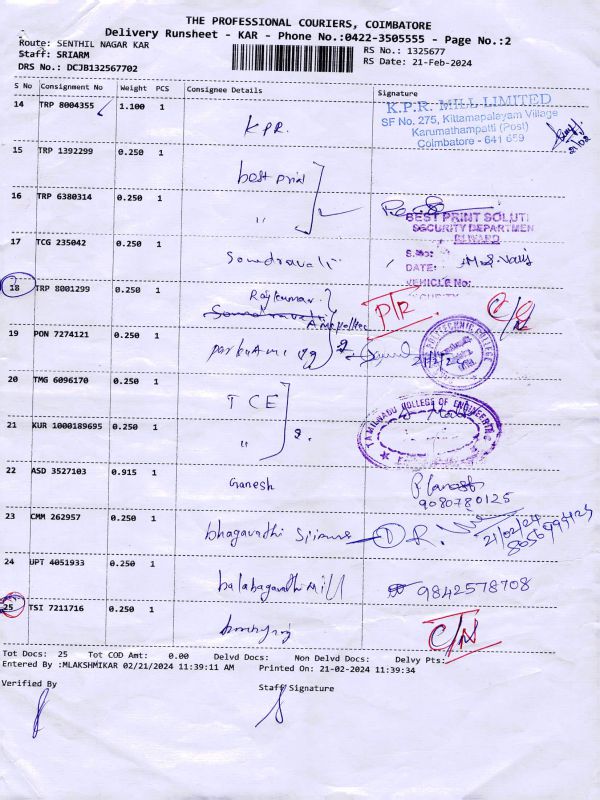 THE PROFESSIONAL COURIERS, COIMBATORE
Delivery Runsheet - KAR - Phone No.:0422-3505555 - Page No.:2
Route: SENTHIL NAGAR KAR
RS No.: 1325677
Staff: SRIARM
RS Date: 21-Feb-2024
DRS No.: DCJB132567702
S No Consignment No Weight PCS Consignee Details Signature
14 TRP 8004355 1.100 1 KPR.
K.P.R. MILL LIMITED
SF No. 275, Kittampalayam Village
Karumathampatti (Post)
Coimbatore - 641 659
15 TRP 1392299 0.250 1 best print
16 TRP 6380314 0.250 1 "
BEST PRINT SOLUTI
SECURITY DEPARTMEN
INWARD
17 TCG 235042 0.250 1
S.No:
DATE:
VEHICLE No:
18 TRP 8001299 0.250 1 Rajkumar
19 PON 7274121 0.250 1
POLYTECHNIC COLLEGE
20 TMG 6096170 0.250 1 TCE
21 KUR 1000189695 0.250 1 "
TAMILNADU COLLEGE OF ENGINEERING
22 ASD 3527103 0.915 1 Ganesh
9080780125
23 CMM 262957 0.250 1 bhagavadhi
21/02/24
24 UPT 4051933 0.250 1 Mill 9842578708
25 TSI 7211716 0.250 1
Tot Docs: 25 Tot COD Amt: 0.00 Delvd Docs: Non Delvd Docs: Delvy Pts:
Entered By :MLAKSHMIKAR 02/21/2024 11:39:11 AM Printed On: 21-02-2024 11:39:34
Verified By Staff Signature